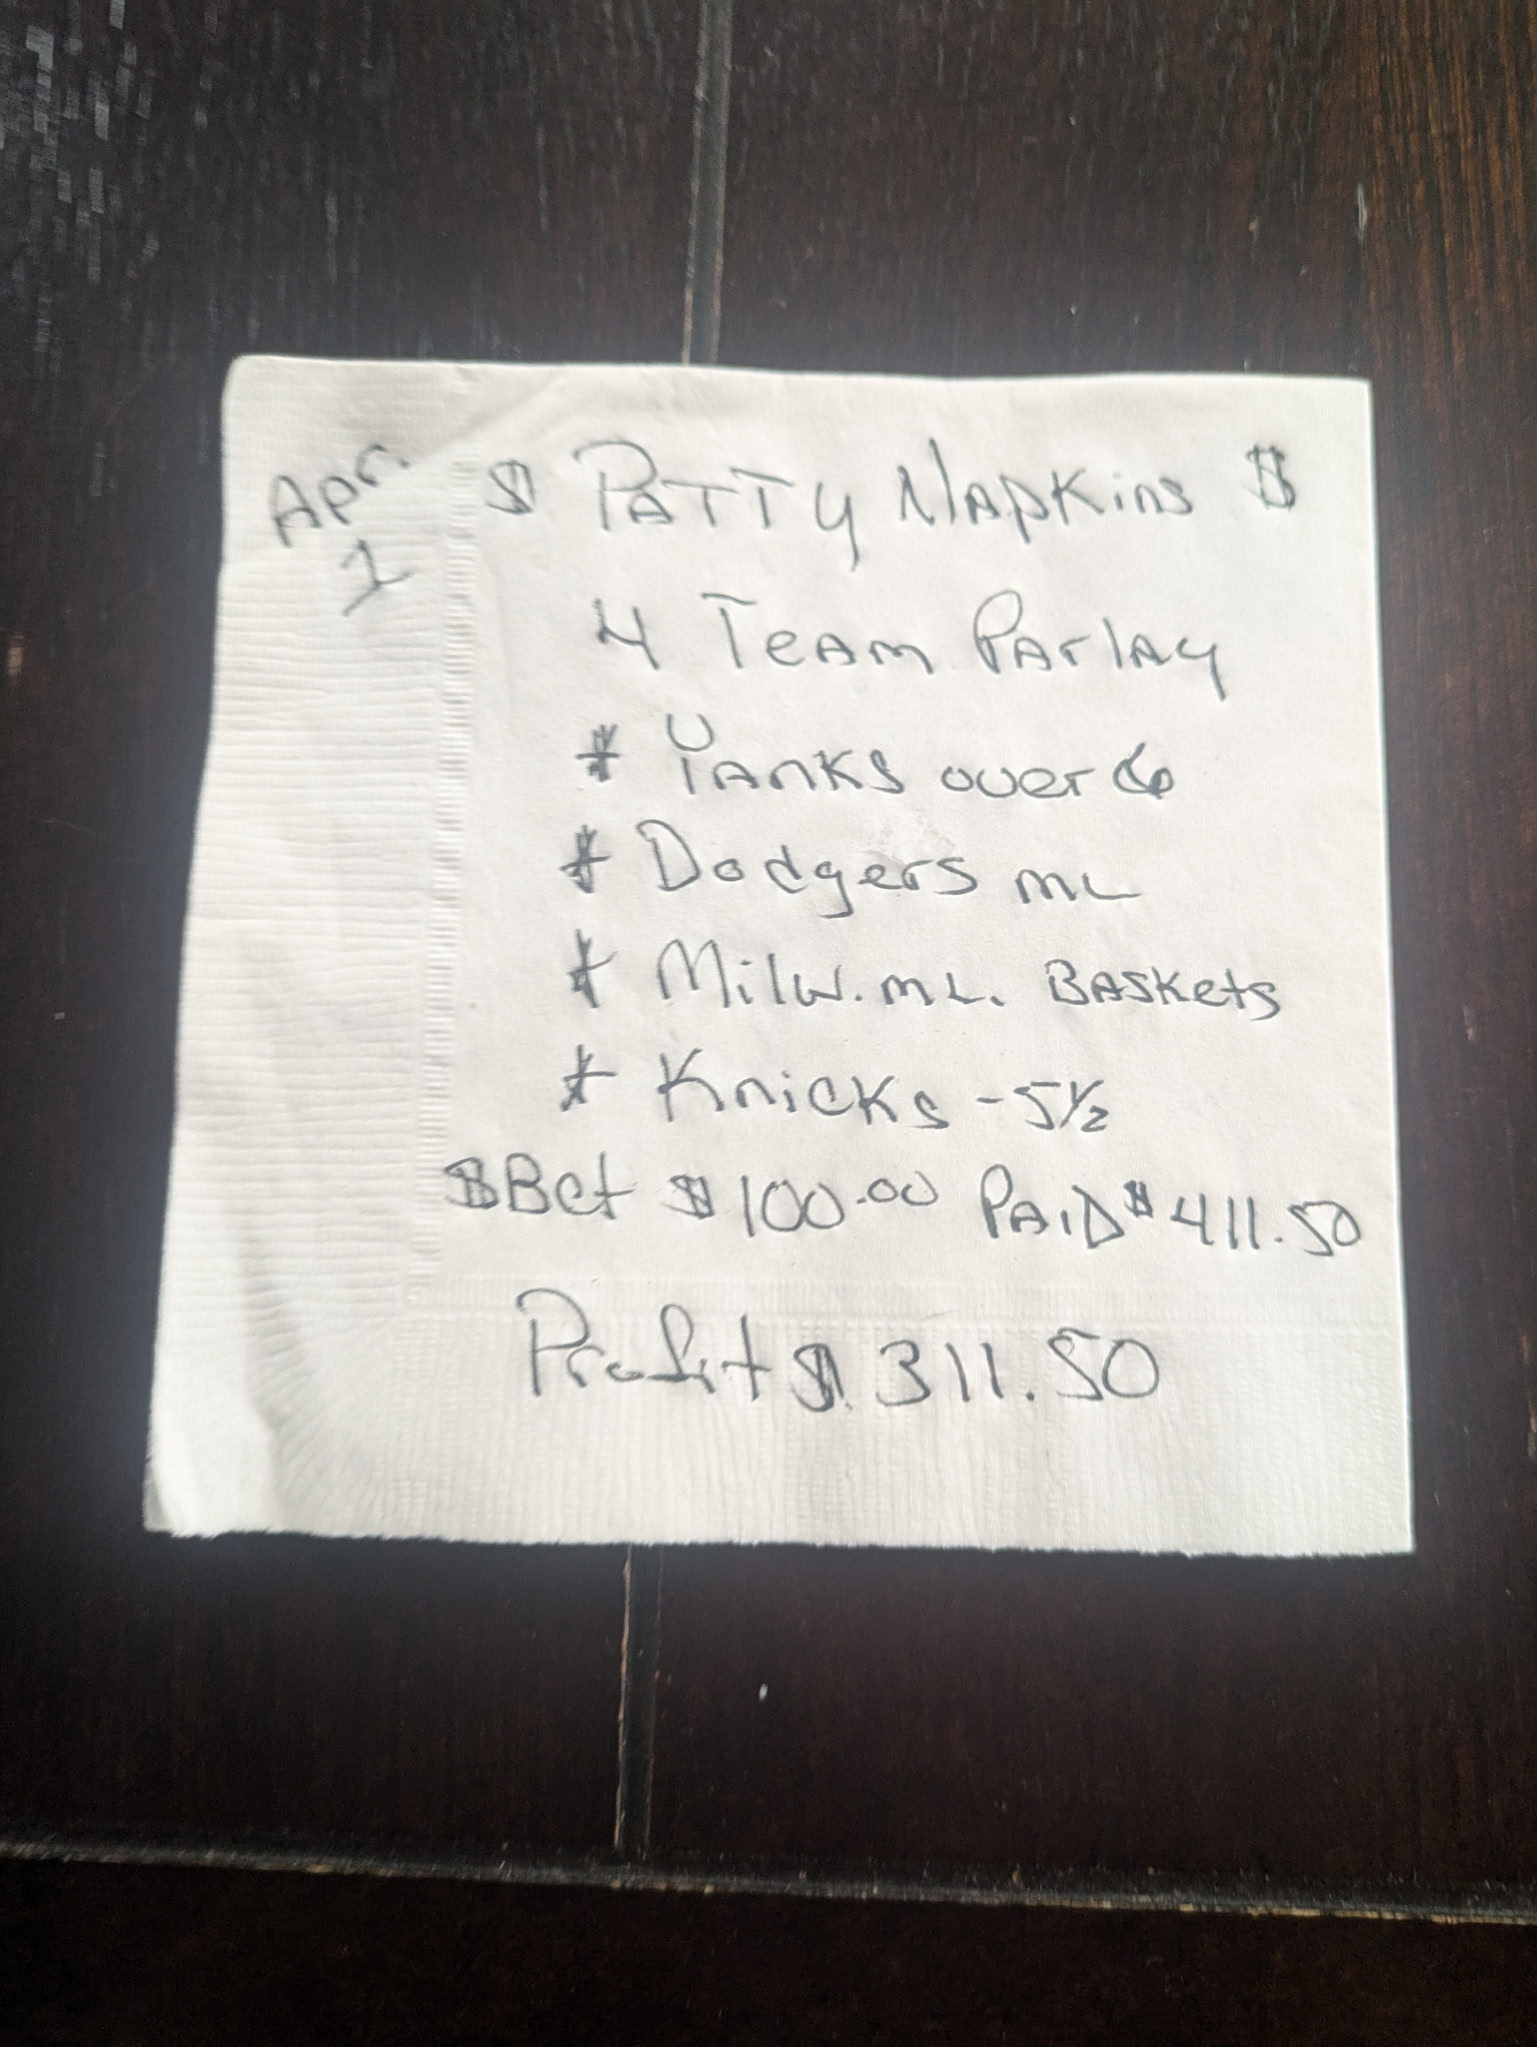 Apr. 1
$ Patty Napkins $
4 Team Parlay
* Yanks over 6
* Dodgers mL
* Milw. mL. Baskets
* Knicks -5½
$Bet $100.00 Paid $411.50
Profit $311.50